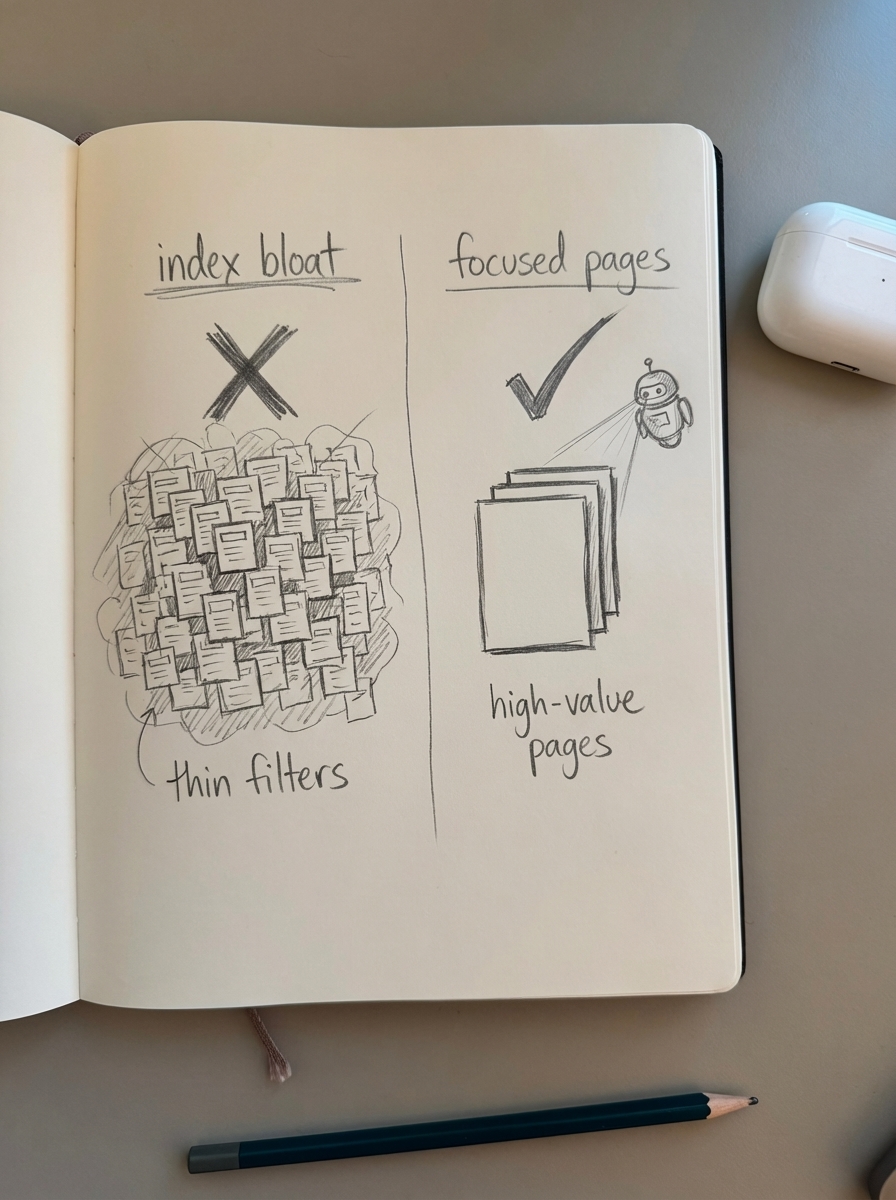 index bloat
thin filters
focused pages
high-value
pages